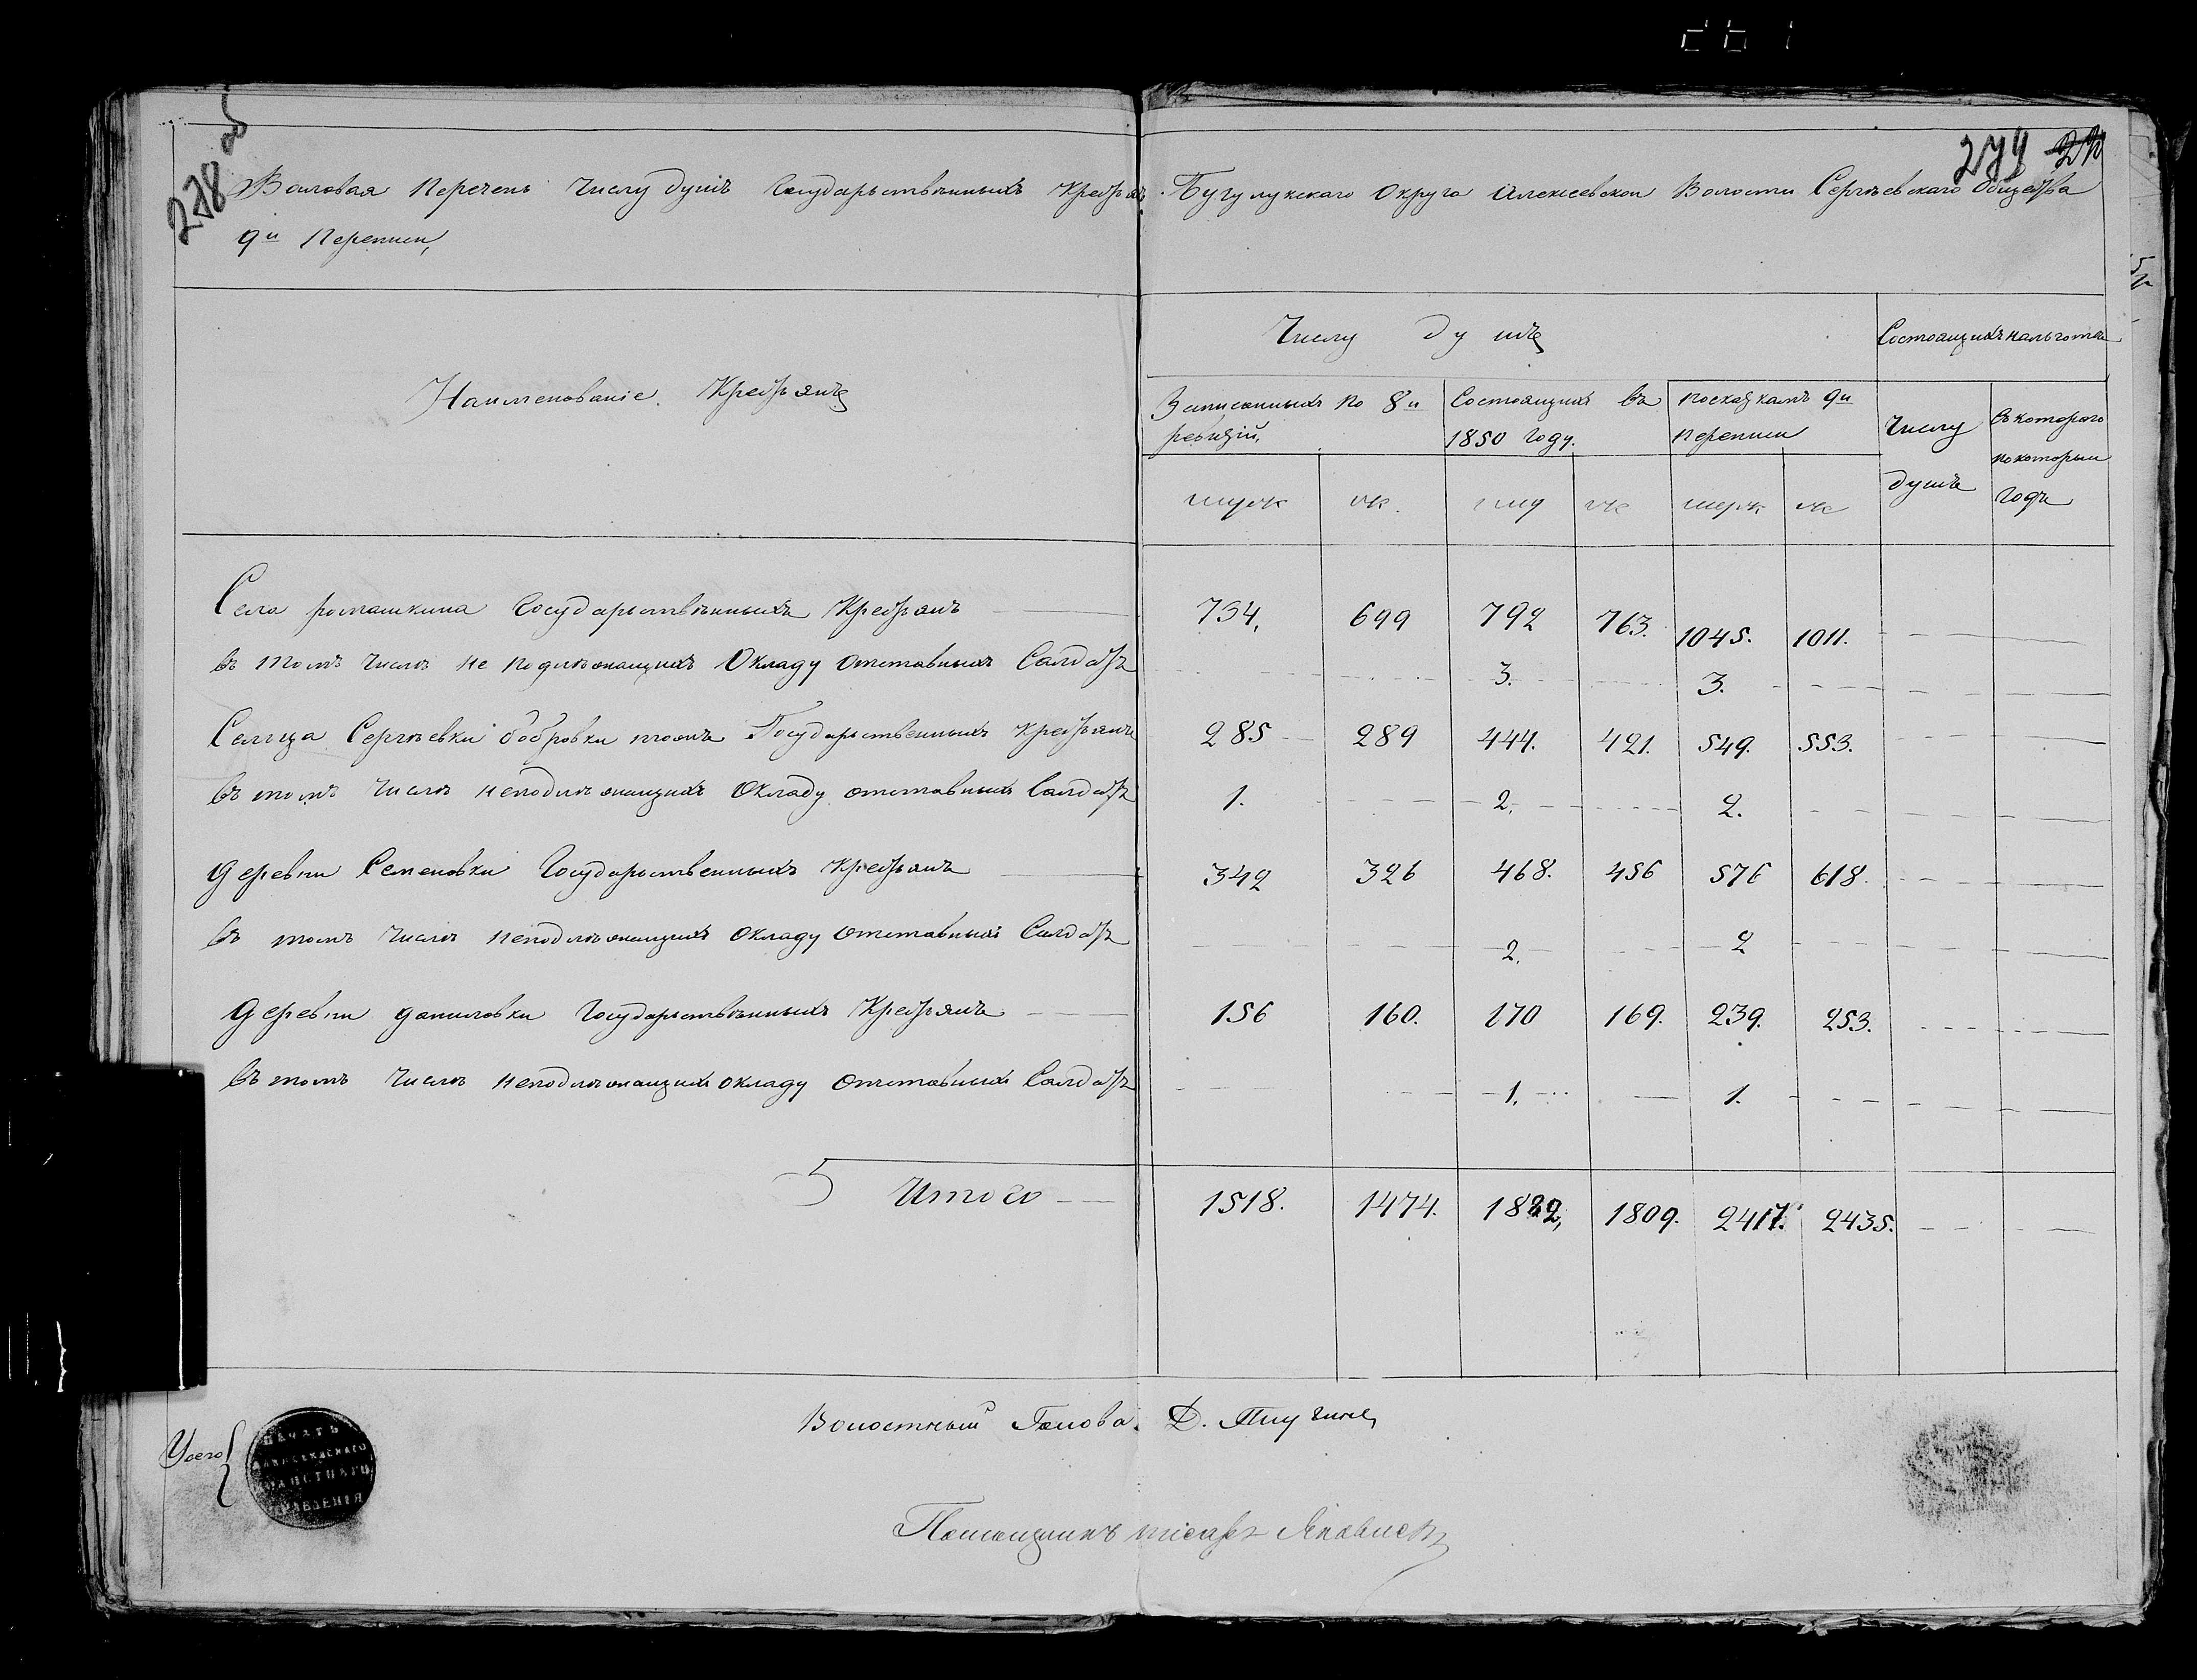 278 об
279
Валовая Перечень Числу душъ Государьственныхъ Крестьянъ Бугулукскаго Округа Алексеевской Волости Сергѣевскаго Общества
9й Переписи,
Наименованіе Крестьянъ
Числу душъ
Состоящихъ нальготѣ
Записанныхъ по 8й ревизіи,
Состоящихъ въ 1850 году.
Посказкамъ 9й переписи
Числу душъ
Съкотораго покоторый годъ
муж ж. муж ж муж ж
Села ромашкина Государьственныхъ Крестьянъ 734, 699 792 763. 1045. 1011.
въ томъ числѣ не подлѣжащихъ Окладу отставныхъ Салдатъ 3. 3.
Сельца Сергѣевки бобровки тожъ Государственныхъ крестьянъ 285 289 444. 421. 549. 553.
въ томъ числѣ неподлѣжащихъ Окладу отставныхъ Салдатъ 1. 2. 2.
деревни Семеновки Государственныхъ крестьянъ 342 326 468. 456 576 618.
въ томъ числѣ неподлѣжащихъ Окладу отставныхъ Салдатъ 2. 2
деревни даниловки Государьственныхъ Крестьянъ 156 160. 170 169. 239. 253.
въ томъ числѣ неподлѣжащихъ окладу отставныхъ Салдатъ 1. 1.
Итого 1518. 1474. 1882, 1809. 2417. 2435.
Волостный Голова. Д.
Усего
ПЕЧАТЬ
АЛЕКСЕЕВСКАГО
ВОЛОСТНАГО
ПРАВЛЕНІЯ
Помощникъ писаря Яковлевъ